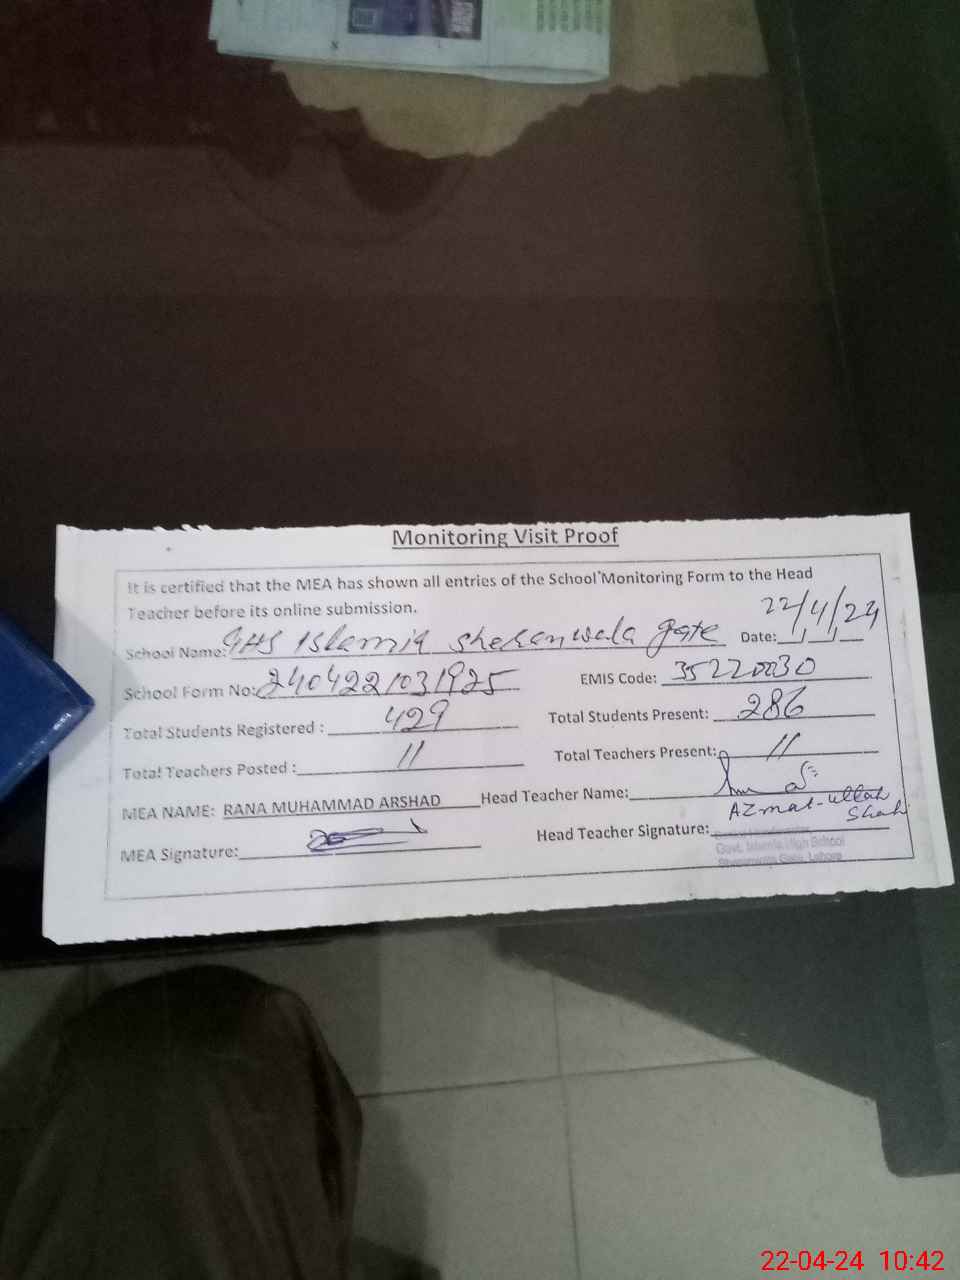 Monitoring Visit Proof
It is certified that the MEA has shown all entries of the School Monitoring Form to the Head
Teacher before its online submission.
School Name: GHS Islamia Sheranwala gate Date: 22/4/24
School Form No: 2404221031925 EMIS Code: 35220030
Total Students Registered : 429 Total Students Present: 286
Total Teachers Posted : 11 Total Teachers Present: 11
MEA NAME: RANA MUHAMMAD ARSHAD Head Teacher Name:
AZmat-ullah
Shah
MEA Signature: Head Teacher Signature:
Govt. Islamia High School
Sheranwala Gate, Lahore
22-04-24 10:42